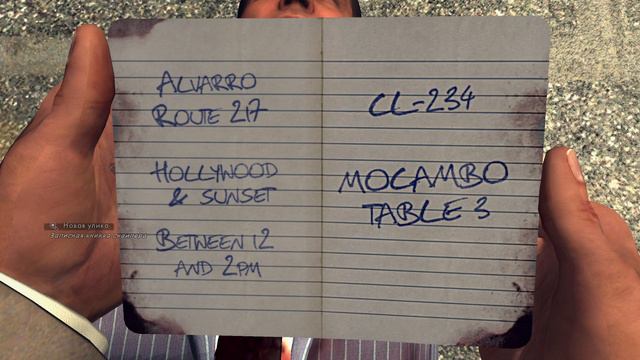 ALVARRO
ROUTE 217
HOLLYWOOD
& SUNSET
BETWEEN 12
AND 2PM
CL-234
MOCAMBO
TABLE 3
Новая улика:
Записная книжка снайпера